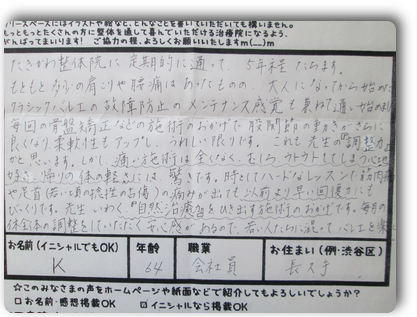 フリースペースにはイラストや絵など、どんなことを書いていただいても構いません。
もっともったくさんの方に整体を通して喜んでいただける治療院になるよう、
がんばってまいります！ ご協力の程、よろしくお願いいたしますm(__)m
整体院に定期的に通って、5年経ちます。
もともと 肩こりや腰痛はあったものの、大人になってから始めた
クラシックバレエの故障防止のメンテナンス感覚も兼ねて通い始めました
毎回の骨盤矯正などの施術のおかげで股関節の動きがさらに
良くなり柔軟性もアップし、うれしい限りです。これも先生の
かと思います。しかし、痛い施術は全くなく、むしろウトウトしてしまう心地
良さ。帰りの体の軽さには、驚きです。時としてハードなレッスンで筋肉痛
や足首(若い頃の捻挫の古傷)の痛みが出ても以前より早い回復力にも
びっくりです。先生いわく"自然治癒力"をひき出す施術のおかげです。毎月の
体全体の調整をしていただく安心感があるので、若い人たちに混ってバレエを
お名前(イニシャルでもOK)
年齢
職業
お住まい(例・渋谷区)
K
64
会社員
長久手
☆このみなさまの声をホームページや紙面などで紹介してもよろしいでしょうか？
□お名前・感想掲載OK ☑イニシャルなら掲載OK